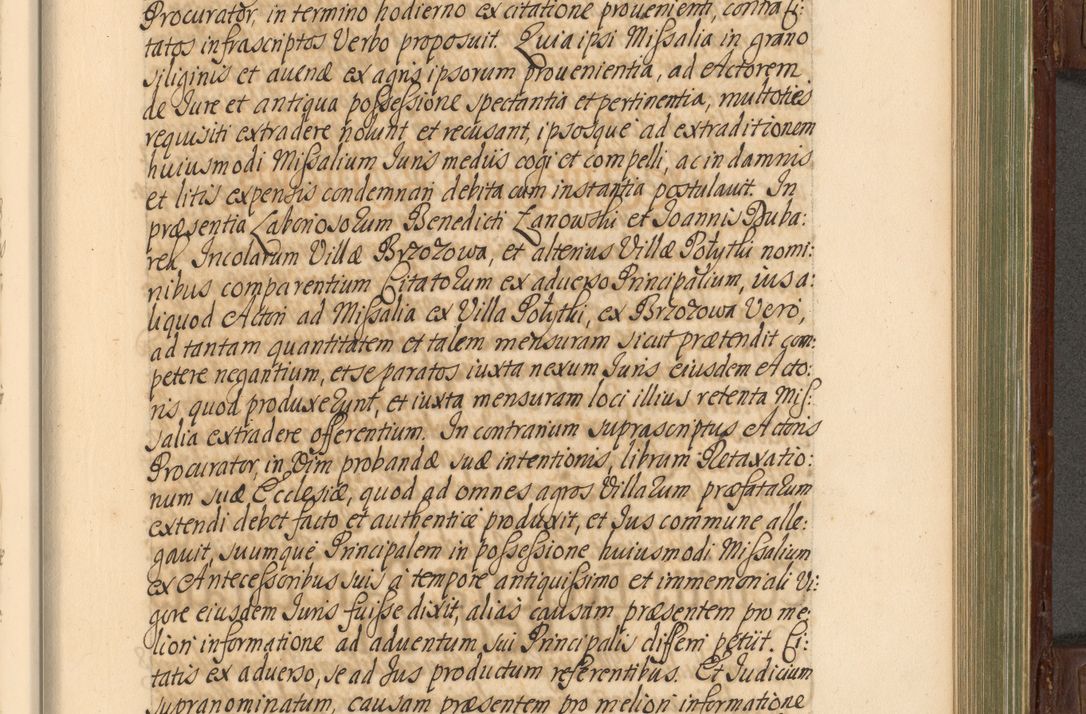 Procurator, in termino hodierno ex citatione prouenienti, contra Ci:
tatos infrascriptos Verbo proposuit. Quia ipsi Missalia in grano
siliginis et auenæ ex agris ipsorum prouenientia, ad Actorem
de Iure et antiqua possessione spectantia et pertinentia, multoties
requisiti extradere nolunt et recusant, ipsosque ad extraditionem
huiusmodi Missalium Iuris mediis cogi et compelli, ac in damnis
et litis expensis condemnari debita cum instantia postulauit. In
præsentia Laboriosorum Benedicti Łanowski et Ioannis Duba:
rek, Incolarum Villæ Brzozowa, et alterius Villæ Połytki nomi:
nibus comparentium Citatorum ex aduerso Principalium, ius a:
liquod Actori ad Missalia ex Villa Połytki, ex Brzozowa Vero,
ad tantam quantitatem et talem mensuram sicut prætendit com:
petere negantium, et se paratos iuxta nexum Iuris eiusdem Acto:
ris quod produxerunt, et iuxta mensuram loci illius retenta Mis:
salia extradere offerentium. In contrarium suprascriptus Actoris
Procurator, in Vim probandæ suæ intentionis, librum Retaxatio:
num suæ Ecclesiæ, quod ad omnes agros Villarum præfatarum
extendi debet facto et authenticè produxit, et Ius commune alle:
gauit, suumque Principalem in possessione huiusmodi Missalium
ex Antecessoribus suis à tempore antiquissimo et immemoriali Vi:
gore eiusdem Iuris fuisse dixit, alias causam præsentem pro me:
liori informatione ad aduentum sui Principalis differri petiit. Ci:
tatis ex aduerso, se ad Ius productum referentibus. Et Iudicium
supranominatum, causam præsentem pro meliori informatione